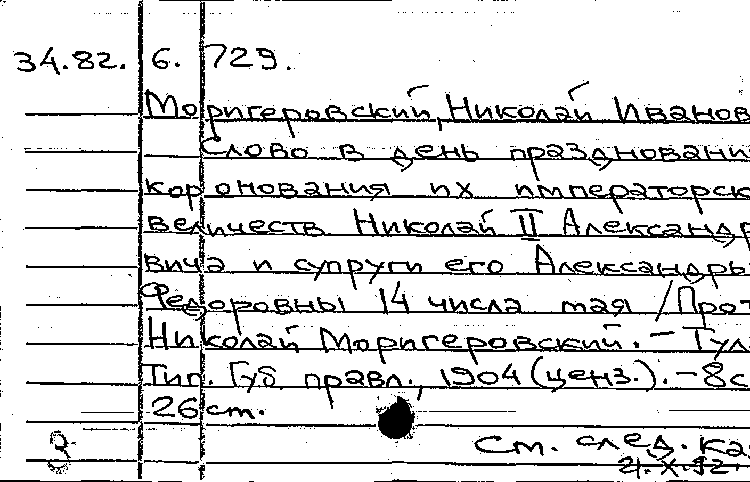 34.82. 6. 729.
Моригеровский, Николай Иванов
Слово в день празднования
коронования их императорск
величеств Николай II Александр
вича и супруги его Александры
Федоровны 14 числа мая / Прот
Николай Моригеровский. — Тул
Тип. Губ. правл., 1904 (ценз.). — 8 с
26 см.
См. след. ка
21.X.92.